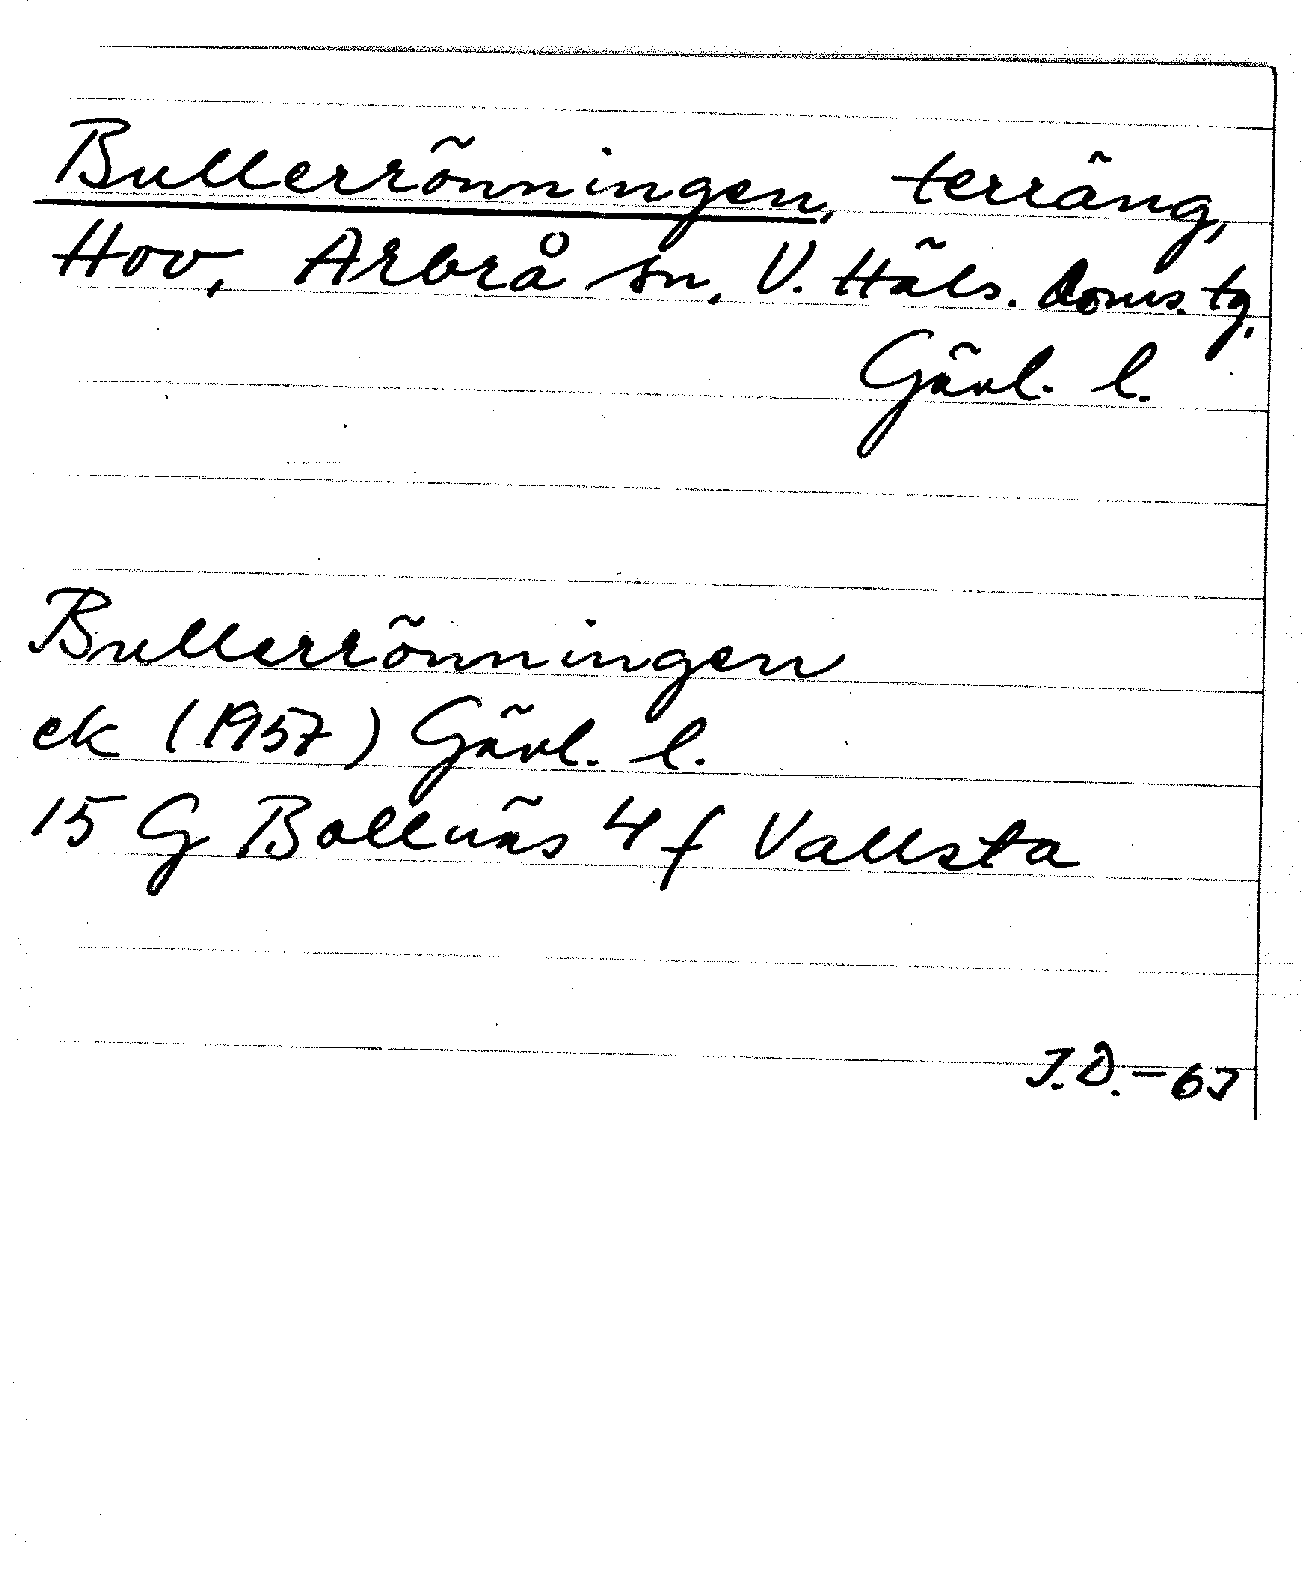 Bullerrönningen, terräng,
Hov, Arbrå sn, V. Häls. Doms. tg.
Gävl. l.
Bullerrönningen
ek (1957) Gävl. l.
15 G Bollnäs 4 f Vallsta
J.D.-67